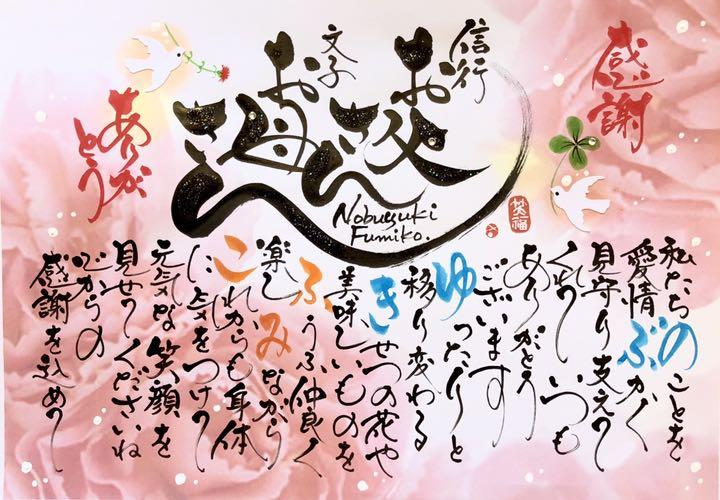 感謝
信行
お父さん
文子
お母さん
ありが
とう
Nobuyuki
Fumiko.
笑福
私たちのことを
愛情ぶかく
見守り支えて
くれて いつも
ありがとう
ございます
ゆったりと
移り変わる
きせつの花や
美味しいものを
ふうふ仲良く
楽しみながら
これからも身体
に気をつけて
元気な笑顔を
見せてくださいね
心からの
感謝を込めて